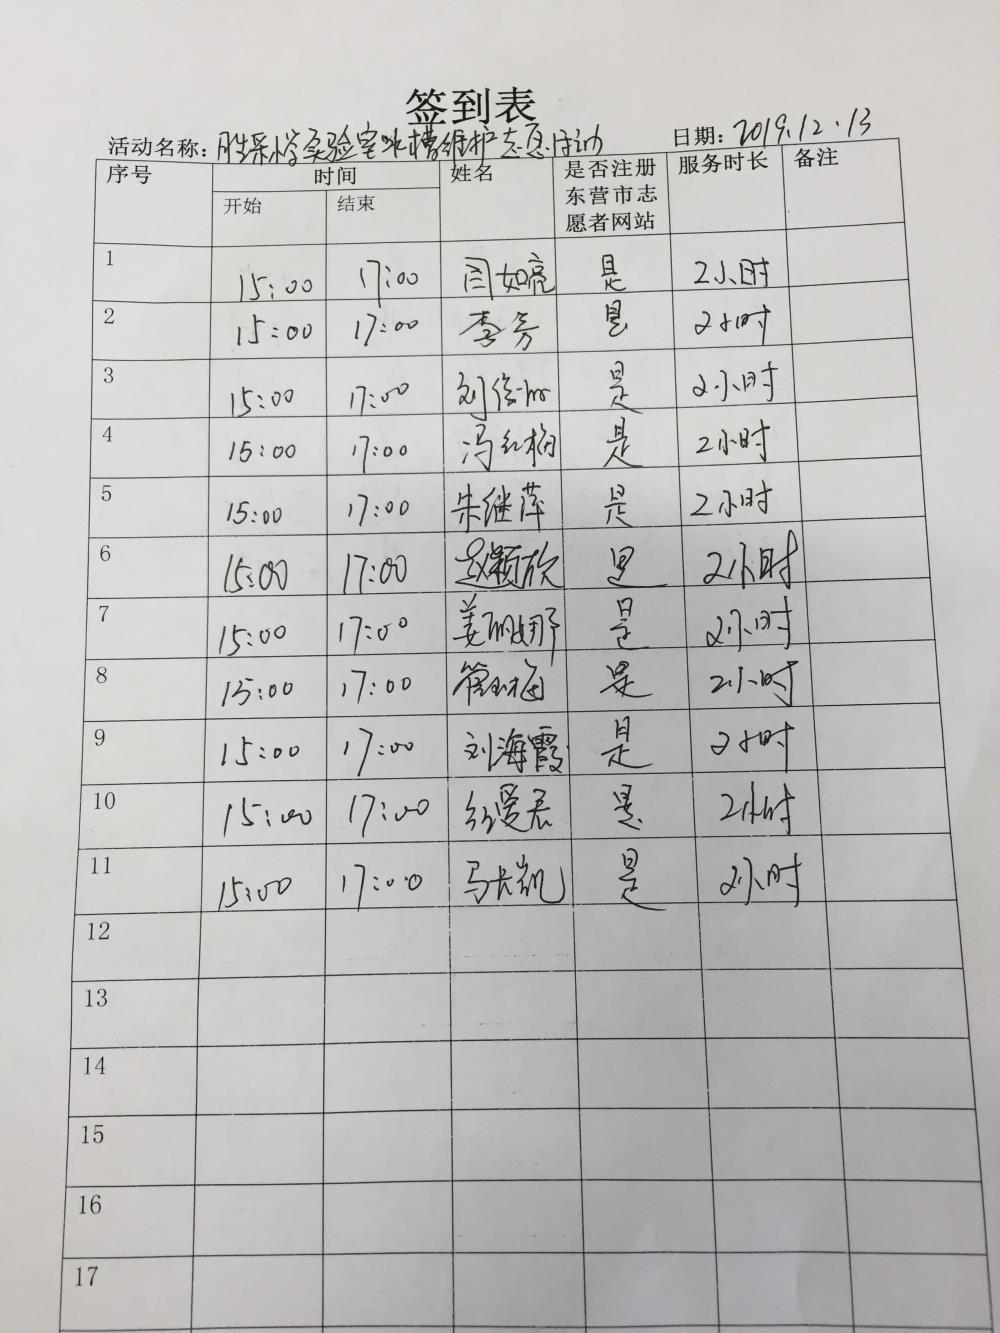 签到表
活动名称：胜采小学实验室水槽维护志愿活动 日期：2019.12.13
序号 时间 姓名 是否注册东营市志愿者网站 服务时长 备注
开始 结束
1 15:00 17:00 闫如亮 是 2小时
2 15:00 17:00 李芳 是 2小时
3 15:00 17:00 刘俊 是 2小时
4 15:00 17:00 冯红梅 是 2小时
5 15:00 17:00 朱继萍 是 2小时
6 15:00 17:00 赵颖欣 是 2小时
7 15:00 17:00 姜丽娜 是 2小时
8 15:00 17:00 管玉梅 是 2小时
9 15:00 17:00 刘海霞 是 2小时
10 15:00 17:00 是 2小时
11 15:00 17:00 马长凯 是 2小时
12
13
14
15
16
17